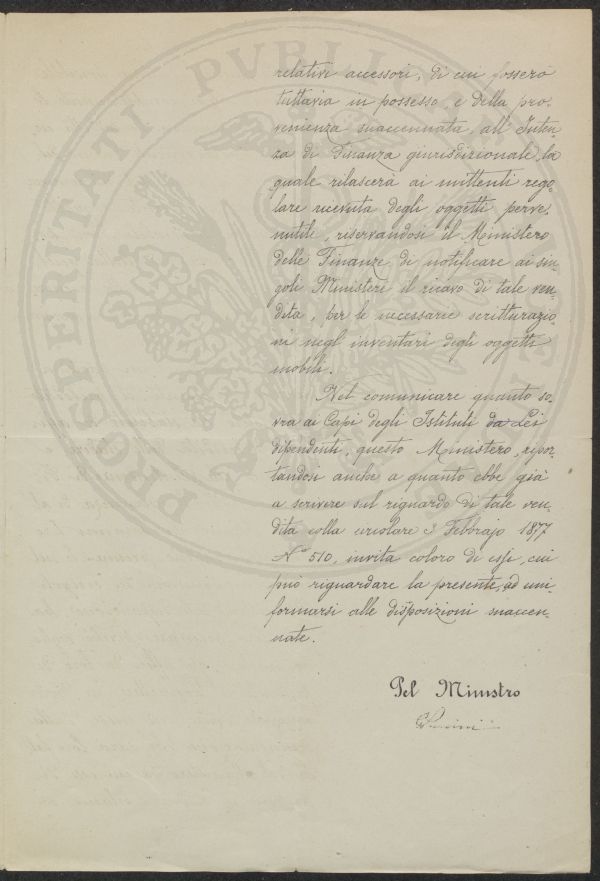 relativi accessori, di cui fossero
tuttavia in possesso, e della pro-
venienza suaccennata, all'Inten-
za di Finanza giurisdizionale, la
quale rilascerà ai mittenti rego-
lare ricevuta degli oggetti perve-
nutile, riservandosi il Ministero
delle Finanze di notificare ai sin-
goli Ministeri il ricavo di tale ven-
dita, per le necessarie scritturazio-
ni negl' inventari degli oggetti
mobili.
Nel comunicare quanto so-
vra ai Capi degli Istituti da Lei
dipendenti, questo Ministero, ripor-
tandosi anche a quanto ebbe già
a scrivere sul riguardo di tale ven-
dita colla circolare 3 Febbrajo 1877
N° 510, invita coloro di essi, cui
può riguardare la presente, ad uni-
formarsi alle disposizioni suaccen-
nate.
Pel Ministro
PROSPERITATI PVBLICAE